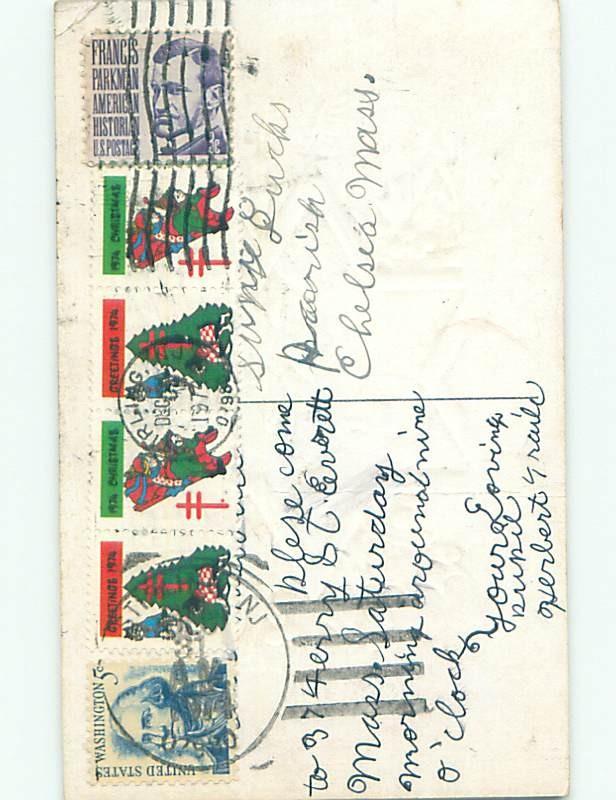 FRANCIS
PARKMAN
AMERICAN
HISTORIAN
U.S.POSTAGE
3c
1974 CHRISTMAS
GREETINGS 1974
1974 CHRISTMAS
GREETINGS 1974
WASHINGTON 5c
UNITED STATES
DEC
Parish
Chelsea Mass.
plese come
to 37 Herry ST Everett
Mass. Saturday
morning around nine
o'clock
Your Loving
pupil